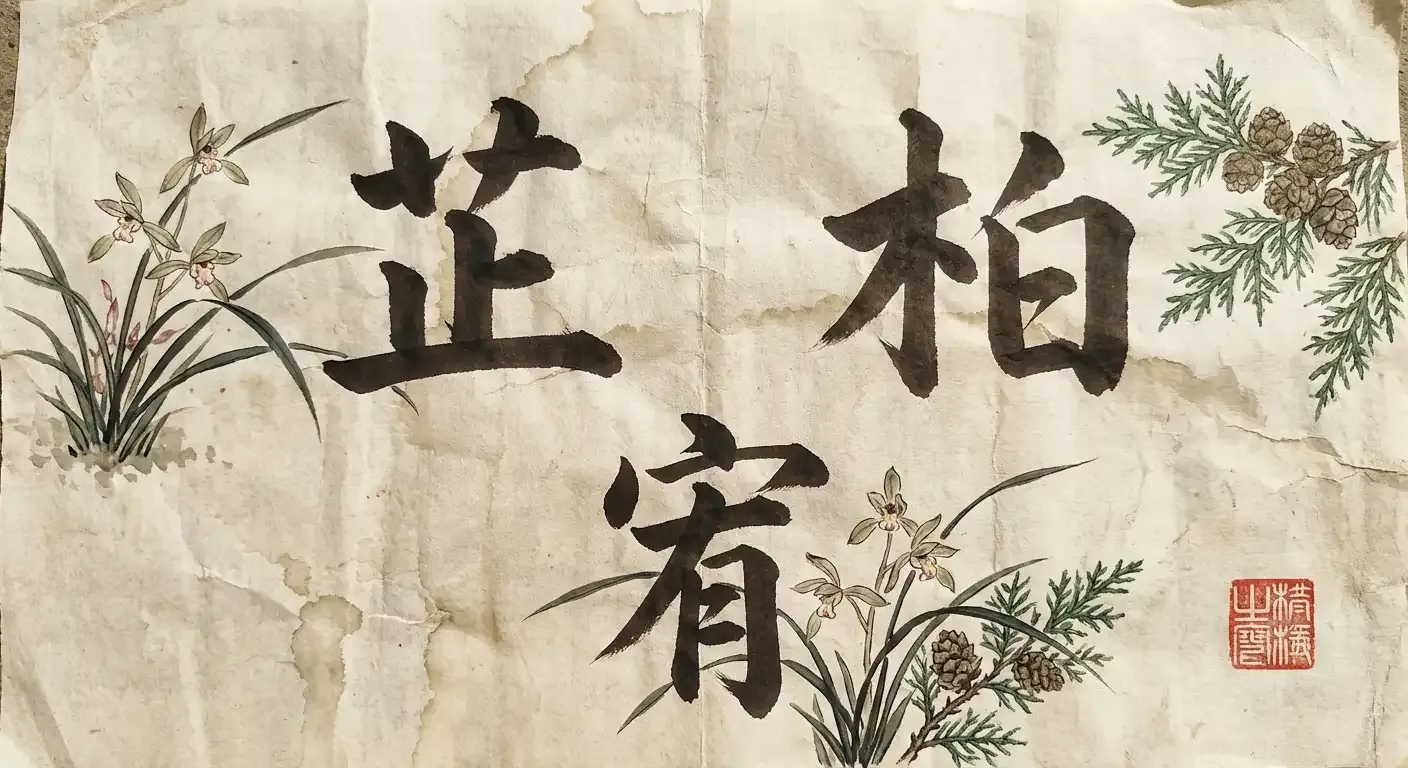 芷 柏
宥